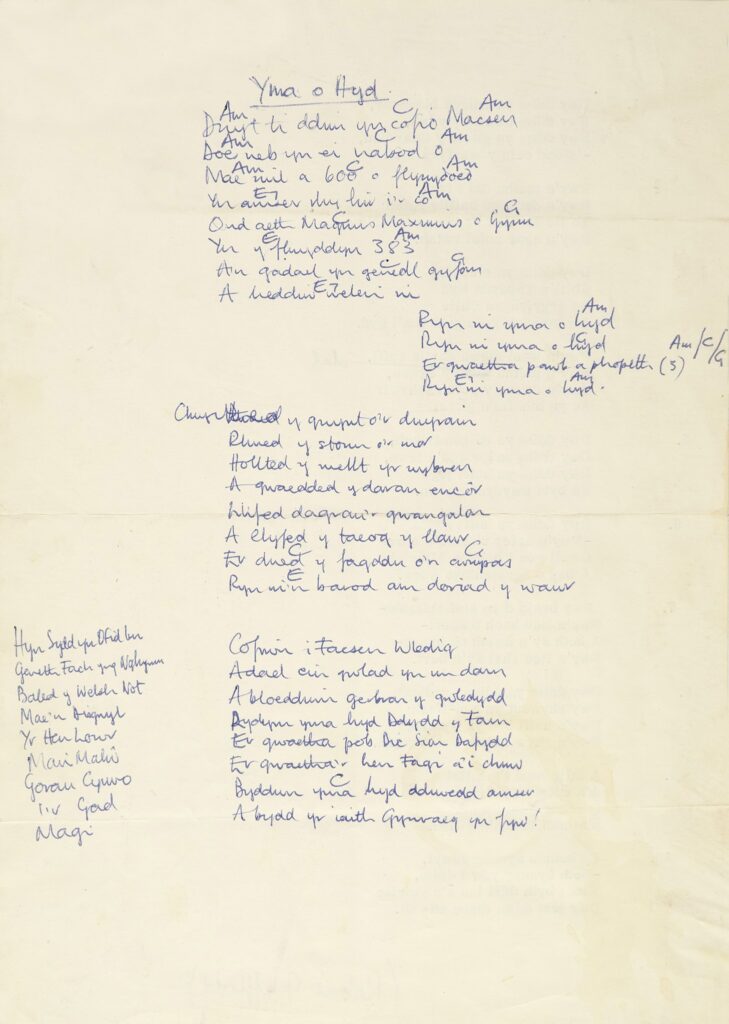 Yma o Hyd
Am C Am
Dwyt ti ddim yn cofio Macsen
Am C Am
Does neb yn ei nabod o
Am C Am
Mae mil a 600 o flynyddoed
E7 Am
Yn amser rhy hir i'r co
C G
Ond aeth Magnus Maximus o Gymru
E Am
Yn y flwyddyn 383
C G
A'n gadael yn genedl gyfan
E7
A heddiw wele ni
Am
Ryn ni yma o hyd
G
Ryn ni yma o hyd
Er gwaetha pawb a phopeth (3) Am/C/G
E7 Am
Ryn ni yma o hyd.
Chwythed y gwynt o'r dwyrain
Rhued y storm o'r mor
Hollted y mellt yr wybren
A gwaedded y daran encôr
Llifed dagrau'r gwangalon
A llyfed y taeog y llawr
C G
Er dued y fagddu o'n cwmpas
E
Ryn ni'n barod am doriad y wawr
Cofiwn i Facsen Wledig
Adael ein gwlad yn un darn
A bloeddiwn gerbron y gwledydd
Bydwn yma hyd Ddydd y Farn
Er gwaetha pob Dic Sion Dafydd
Er gwaetha'r hen Fagi a'i chriw
C
Byddwn yma hyd ddiwedd amser
A bydd yr iaith Gymraeg yn fyw!
Hyn Sydd yn Ofid Im
Geneth Fach yng Nghymru
Baled y Welsh Not
Mae'n Disgwyl
Yr Hen Wr
Mari Malŵ
Gorau Cymro
I'r Gad
Magi